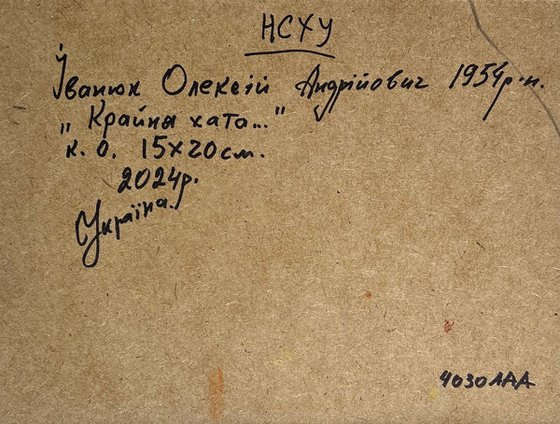 НСХУ
Іванюк Олексій Андрійович 1954р.н.
„Крайня хата..."
к. о. 15х20см.
2024р.
Україна.
4030ЛАА